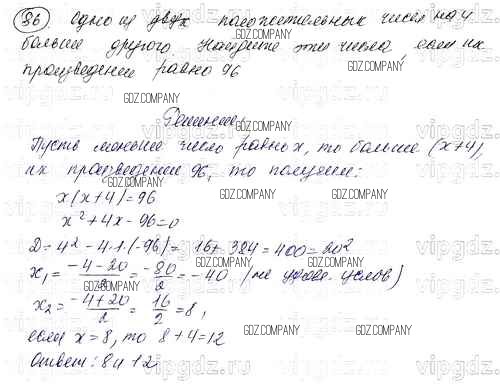 96. Одно из двух положительных чисел на 4
больше другого. Найдите эти числа, если их
произведение равно 96
Решение,
Пусть меньшее число равно x, то больше (x+4),
их произведение 96, то получим:
x(x+4)=96
x²+4x-96=0
D=4²-4·1·(-96)= 16+384=400=20²
x₁= -4-20/2 = -80/2 = -40 (не удовл. услов)
x₂= -4+20/2 = 16/2 =8,
если x=8, то 8+4=12
Ответ: 8 и 12
GDZ.COMPANY
vipgdz.com